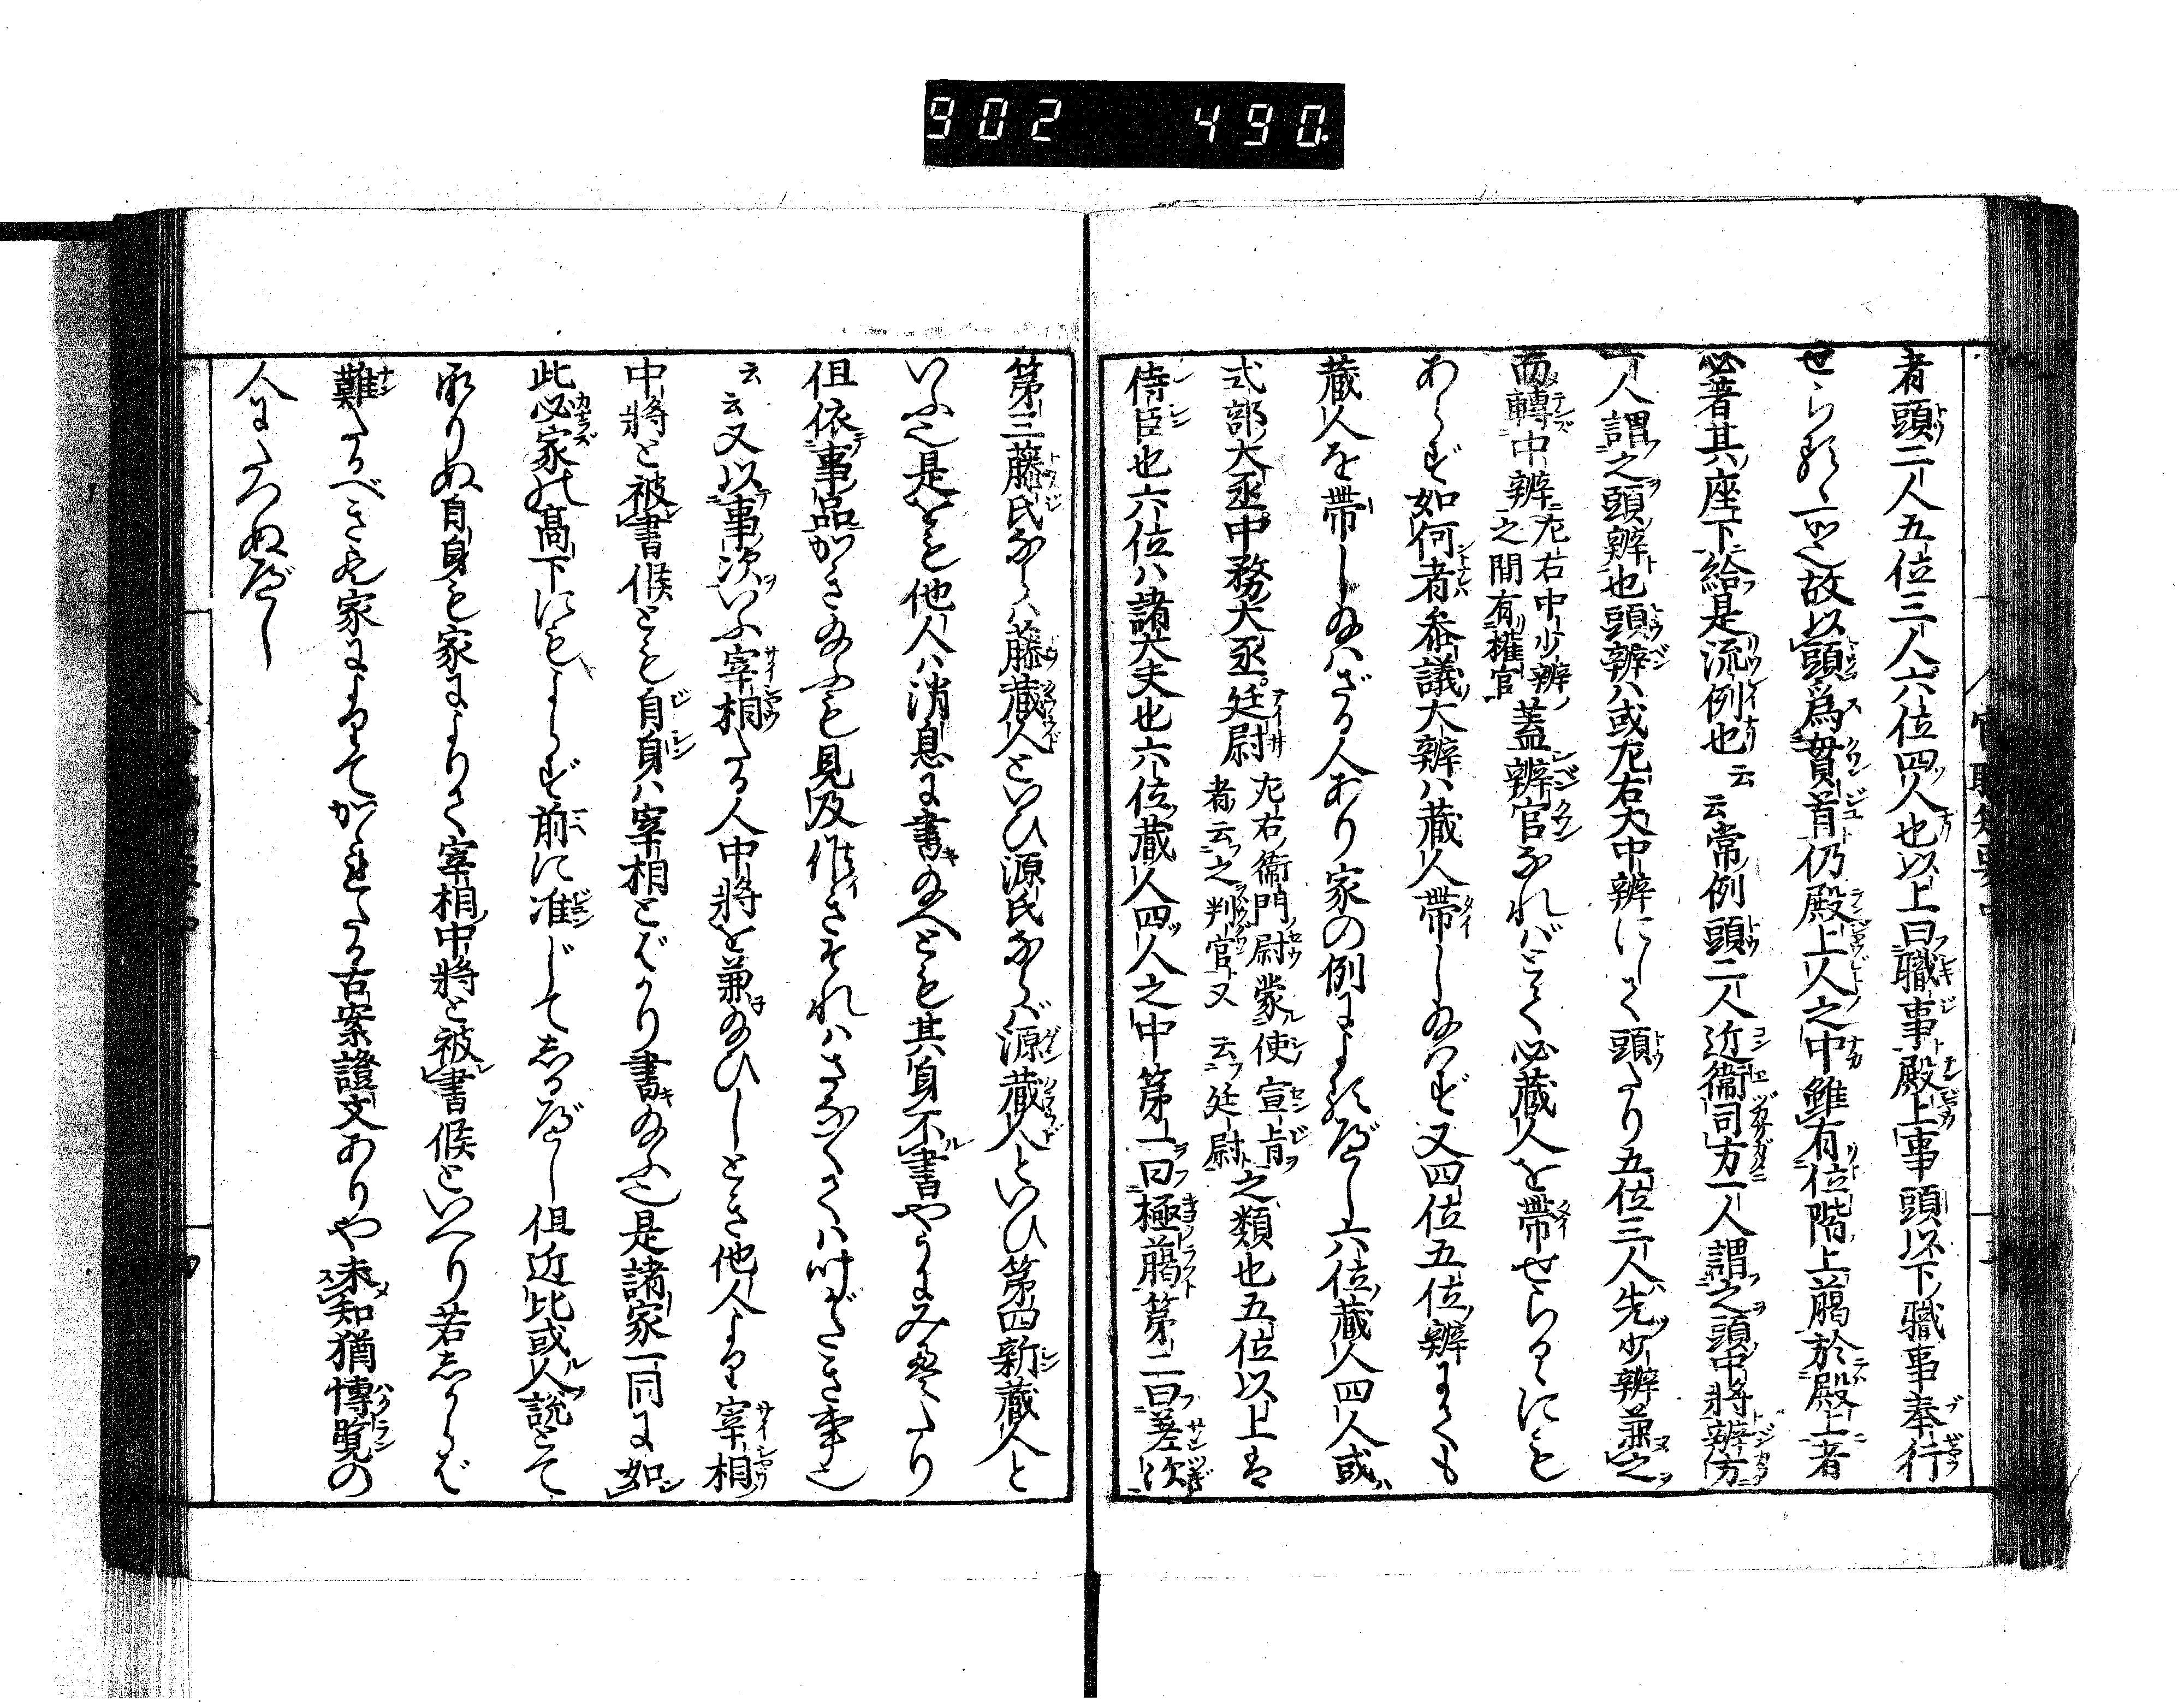 902 490
者頭二人五位三人六位四人也以上曰職事殿上事頭以下職事奉行
せらるゝ也故以頭爲貫首仍殿上人之中雖有位階上﨟於殿上者
必著其座下給是流例也云云常例頭二人近衞司方一人謂之頭中將辨方
一人謂之頭辨也頭辨ハ或左右大中辨にして頭たり五位三人先少辨兼之
而轉中辨左右中少辨之間有權官蓋辨官なればとて必蔵人を帶せらるゝにも
あらず如何者參議大辨ハ蔵人帶し給はず又四位五位辨にても
蔵人を帶し給ハざる人あり家の例によるべし六位蔵人四人或
式部大丞中務大丞廷尉左右衞門尉蒙使宣旨者云之判官又云廷尉之類也五位以上は
侍臣也六位ハ諸大夫也六位蔵人四人之中第一曰極﨟第二曰差次
第三藤氏ならハ藤蔵人といひ源氏ならバ源蔵人といひ第四新蔵人と
いふ也是等も他人ハ消息に書給へとも其身不書やうにみえたり
但依事品かき給ふも見及侍さそれハさなくてハ叶がたき事也
云云又以事次いふ宰相たる人中將を兼給ひしとき他人より宰相
中將と被書候とも自身ハ宰相とばかり書給ふ也是諸家一同に如
此必家の高下にもよらず前に准じてしるべし但近比或人説とて
承りぬ自身も家によりて宰相中將と被書候といへり若しからば
難たるべき歟家によりてかゝれたる古案證文ありや未知猶博覧の
人にたつぬべし